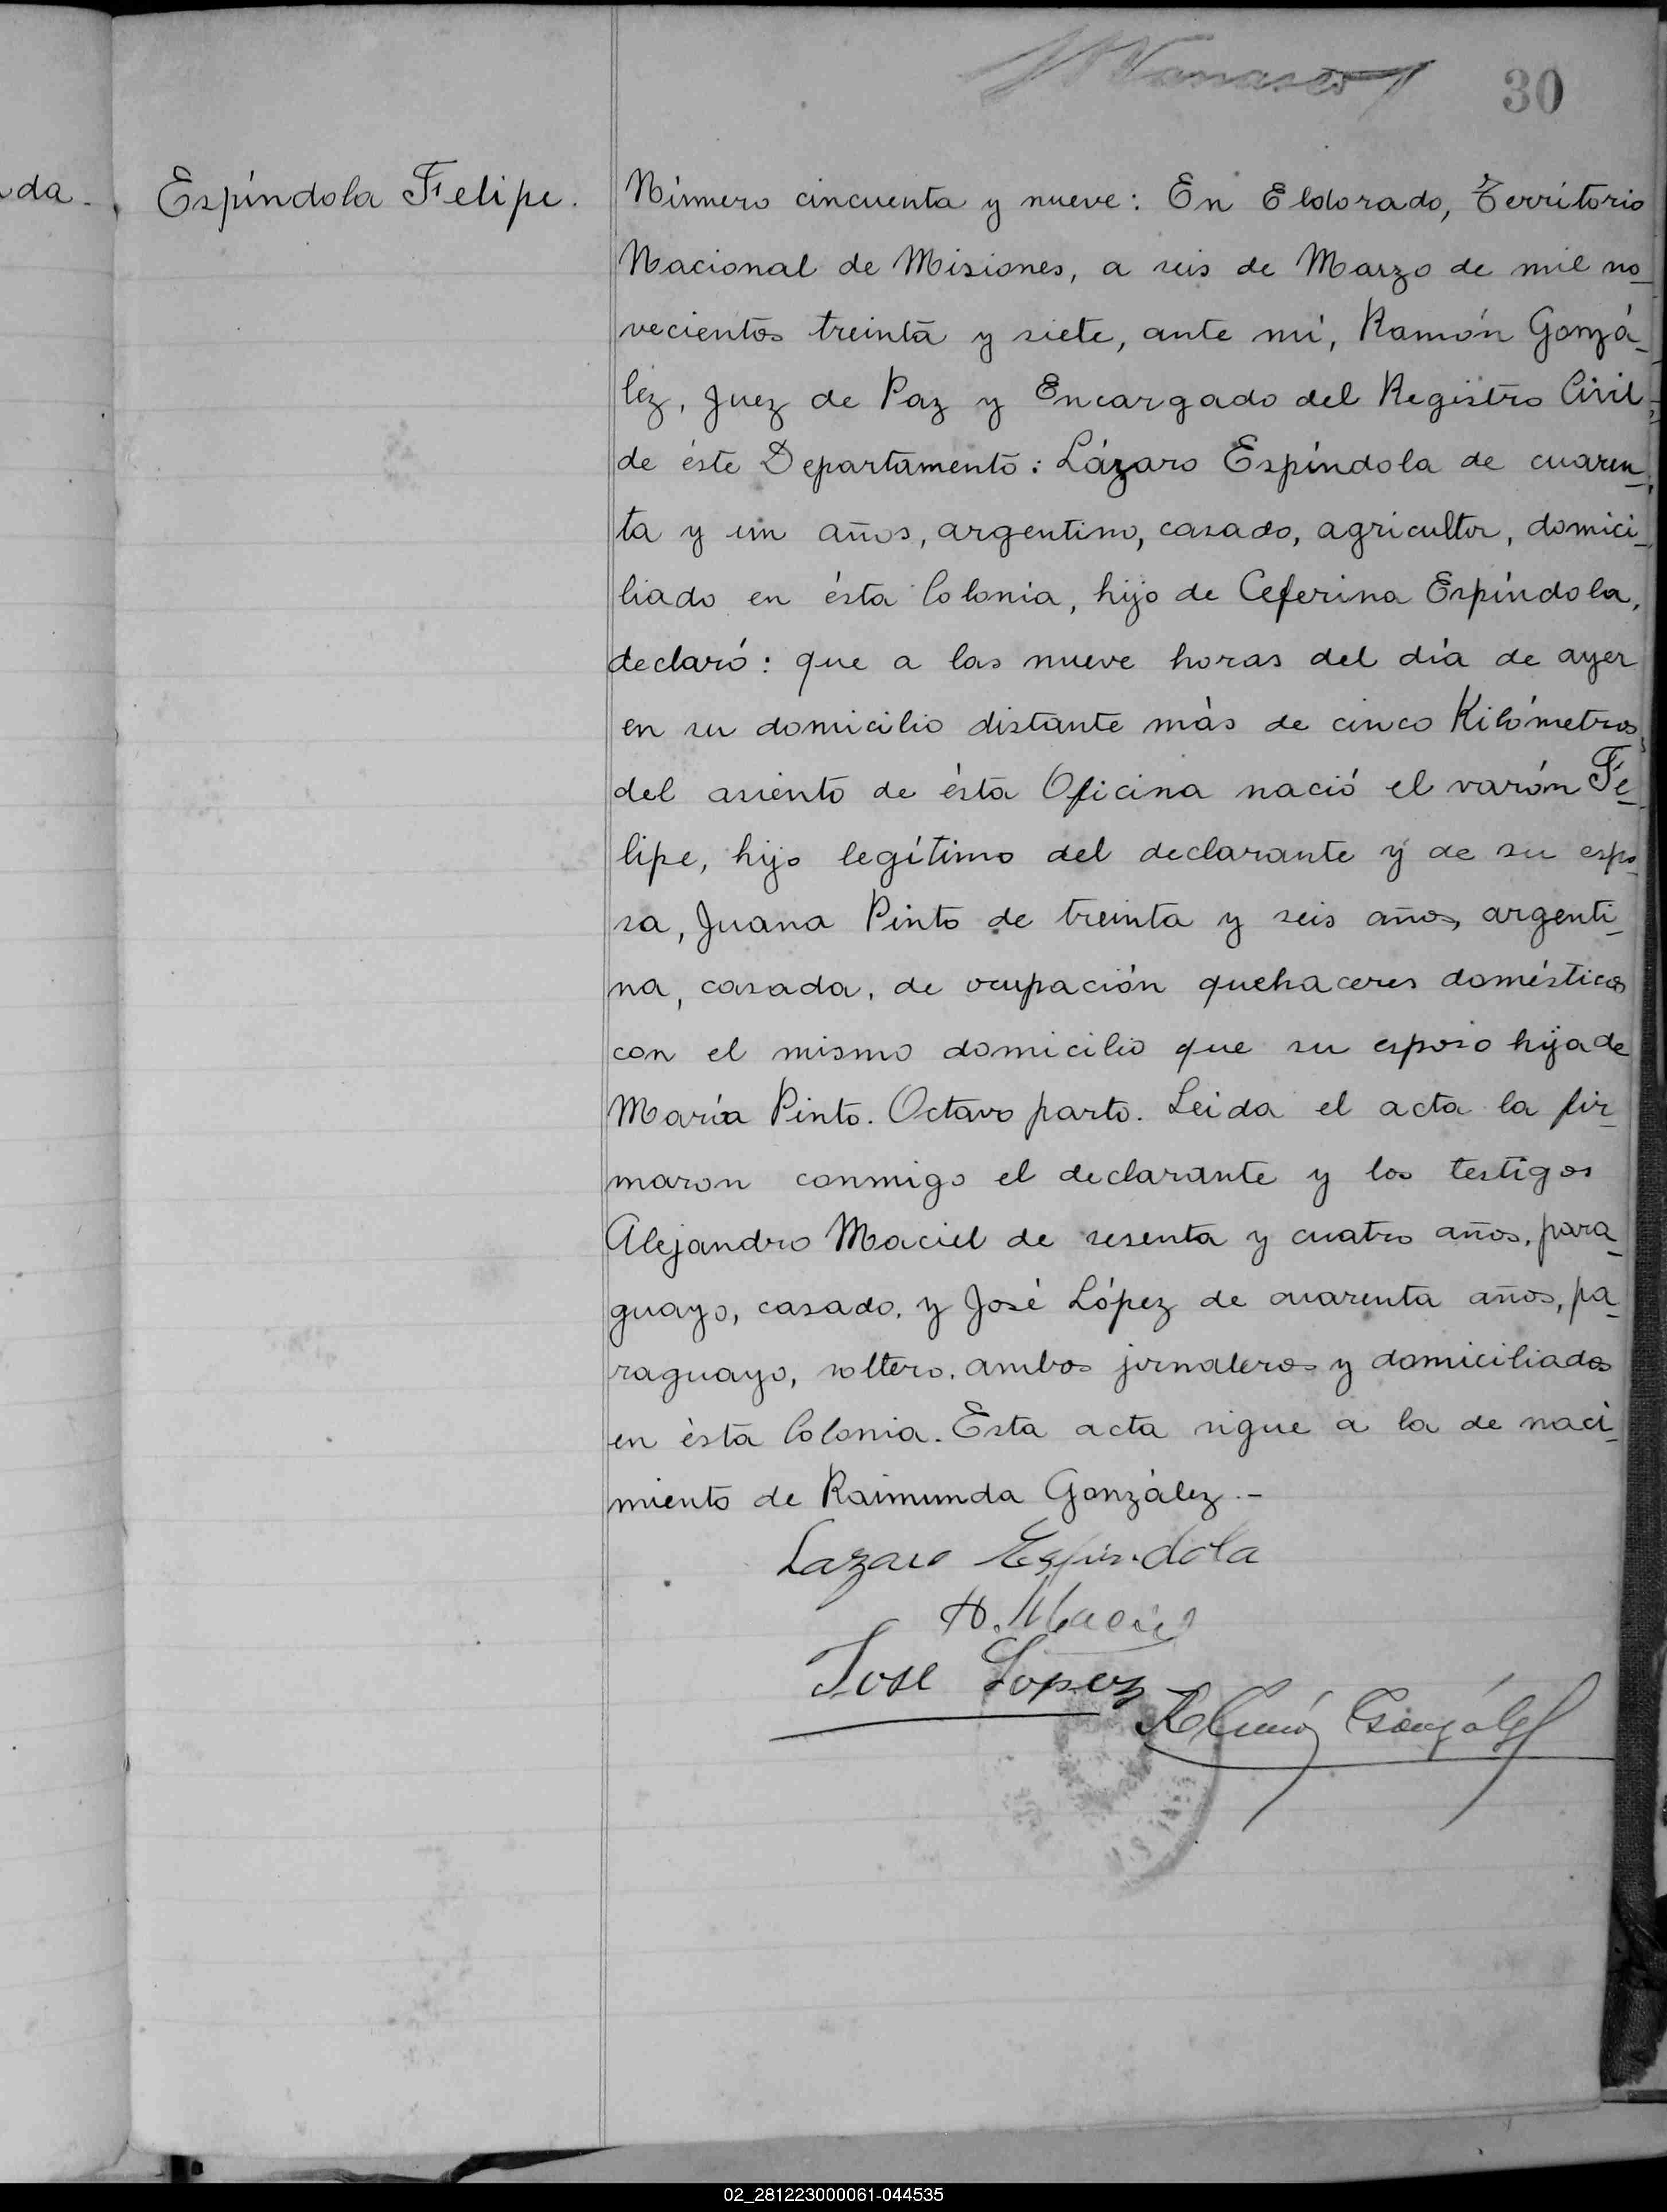 30
da.
Espíndola Felipe.
Número cincuenta y nueve: En Eldorado, Territorio
Nacional de Misiones, a seis de Marzo de mil no_
vecientos treinta y siete, ante mí, Ramón Gonzá_
lez, Juez de Paz y Encargado del Registro Civil
de éste Departamento: Lázaro Espíndola de cuaren_
ta y un años, argentino, casado, agricultor, domici_
liado en ésta Colonia, hijo de Ceferina Espíndola,
declaró: que a las nueve horas del día de ayer
en su domicilio distante más de cinco Kilómetros
del asiento de ésta Oficina nació el varón Fe_
lipe, hijo legítimo del declarante y de su espo_
sa, Juana Pinto de treinta y seis años, argenti_
na, casada, de ocupación quehaceres domésticos
con el mismo domicilio que su esposo hija de
María Pinto. Octavo parto. Leida el acta la fir_
maron conmigo el declarante y los testigos
Alejandro Maciel de sesenta y cuatro años, para_
guayo, casado, y José López de cuarenta años, pa_
raguayo, soltero, ambos jornaleros y domiciliados
en ésta Colonia. Esta acta sigue a la de naci_
miento de Raimunda González.-
Lazaro Espindola
A. Maciel
Jose Lopez
Ramón González
02_281223000061-044535